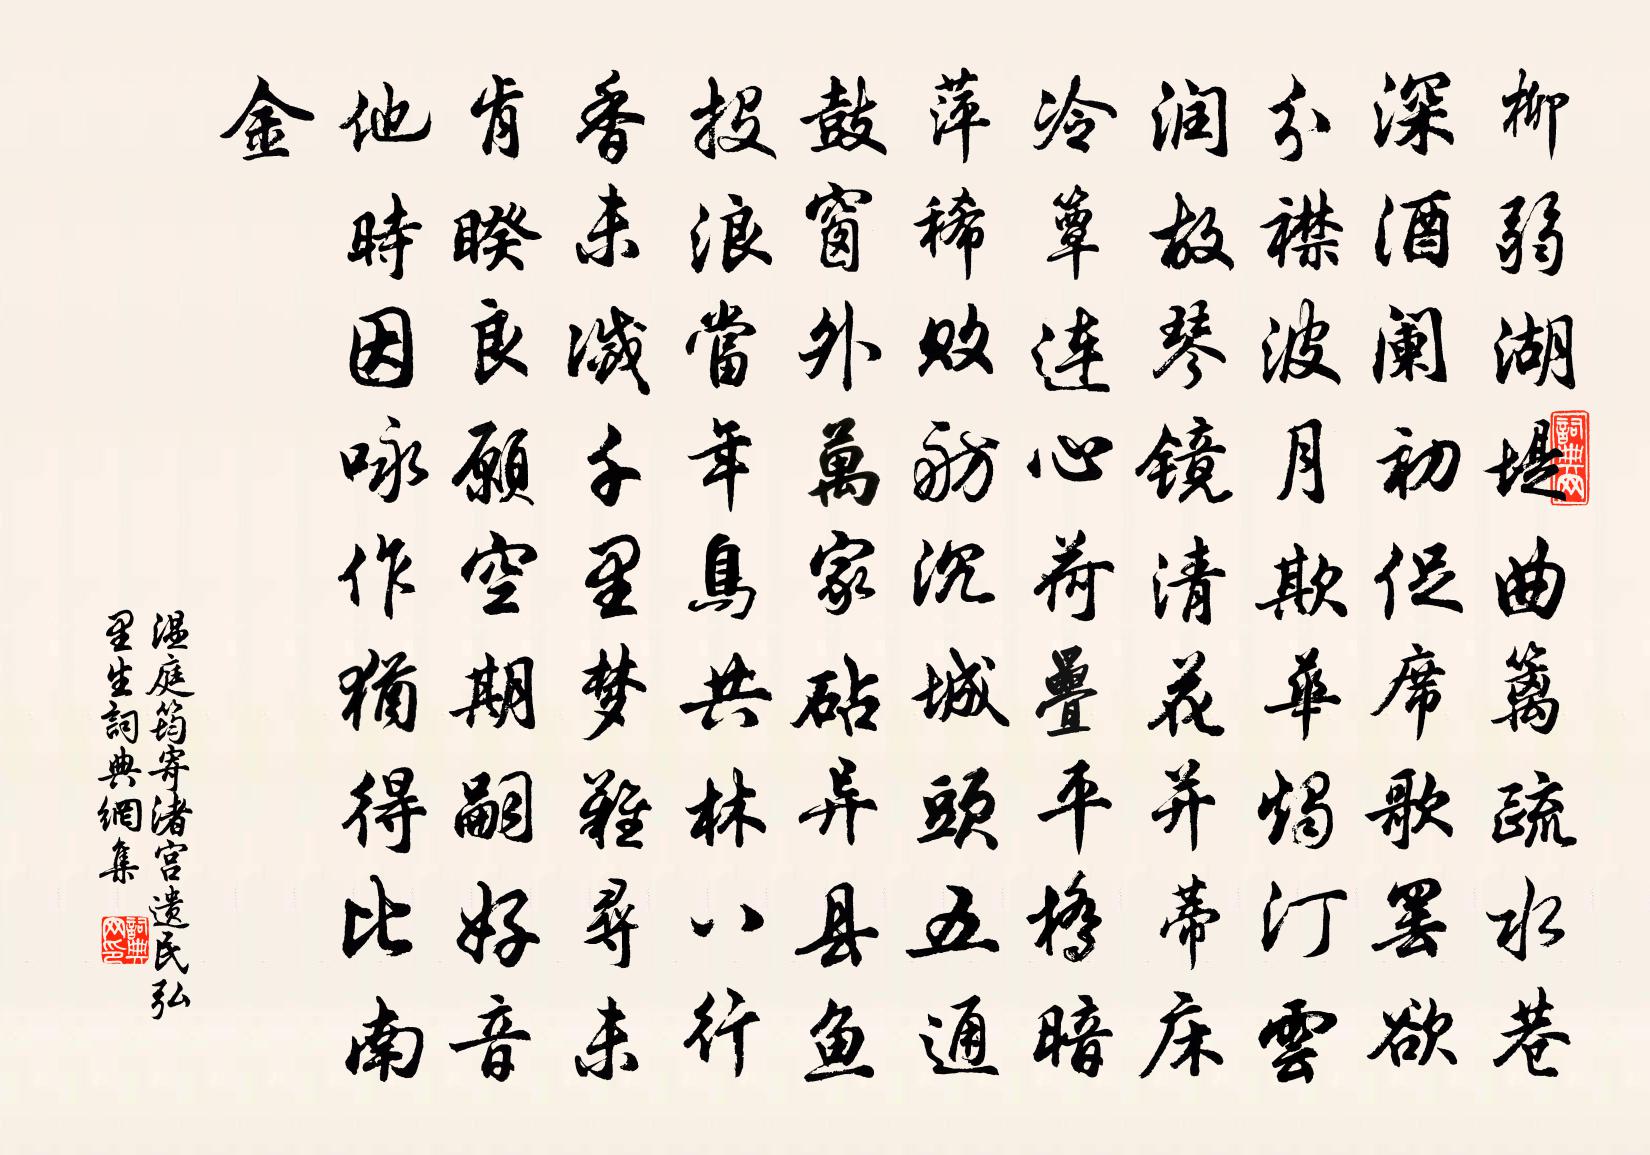 柳弱湖堤曲篱疏水巷
深酒阑初促席歌罢欲
分襟波月欺华烛汀雲
润故琴镜清花并蒂床
冷簟连心荷疊平桥暗
萍稀败舫沉城頭五通
鼓窗外萬家砧异县鱼
投浪當年鳥共林八行
香未滅千里梦难尋未
肯睽良願空期嗣好音
他時因咏作猶得比南
金
温庭筠寄渚宫遗民弘
里生詞典網集
詞典网
詞典网印